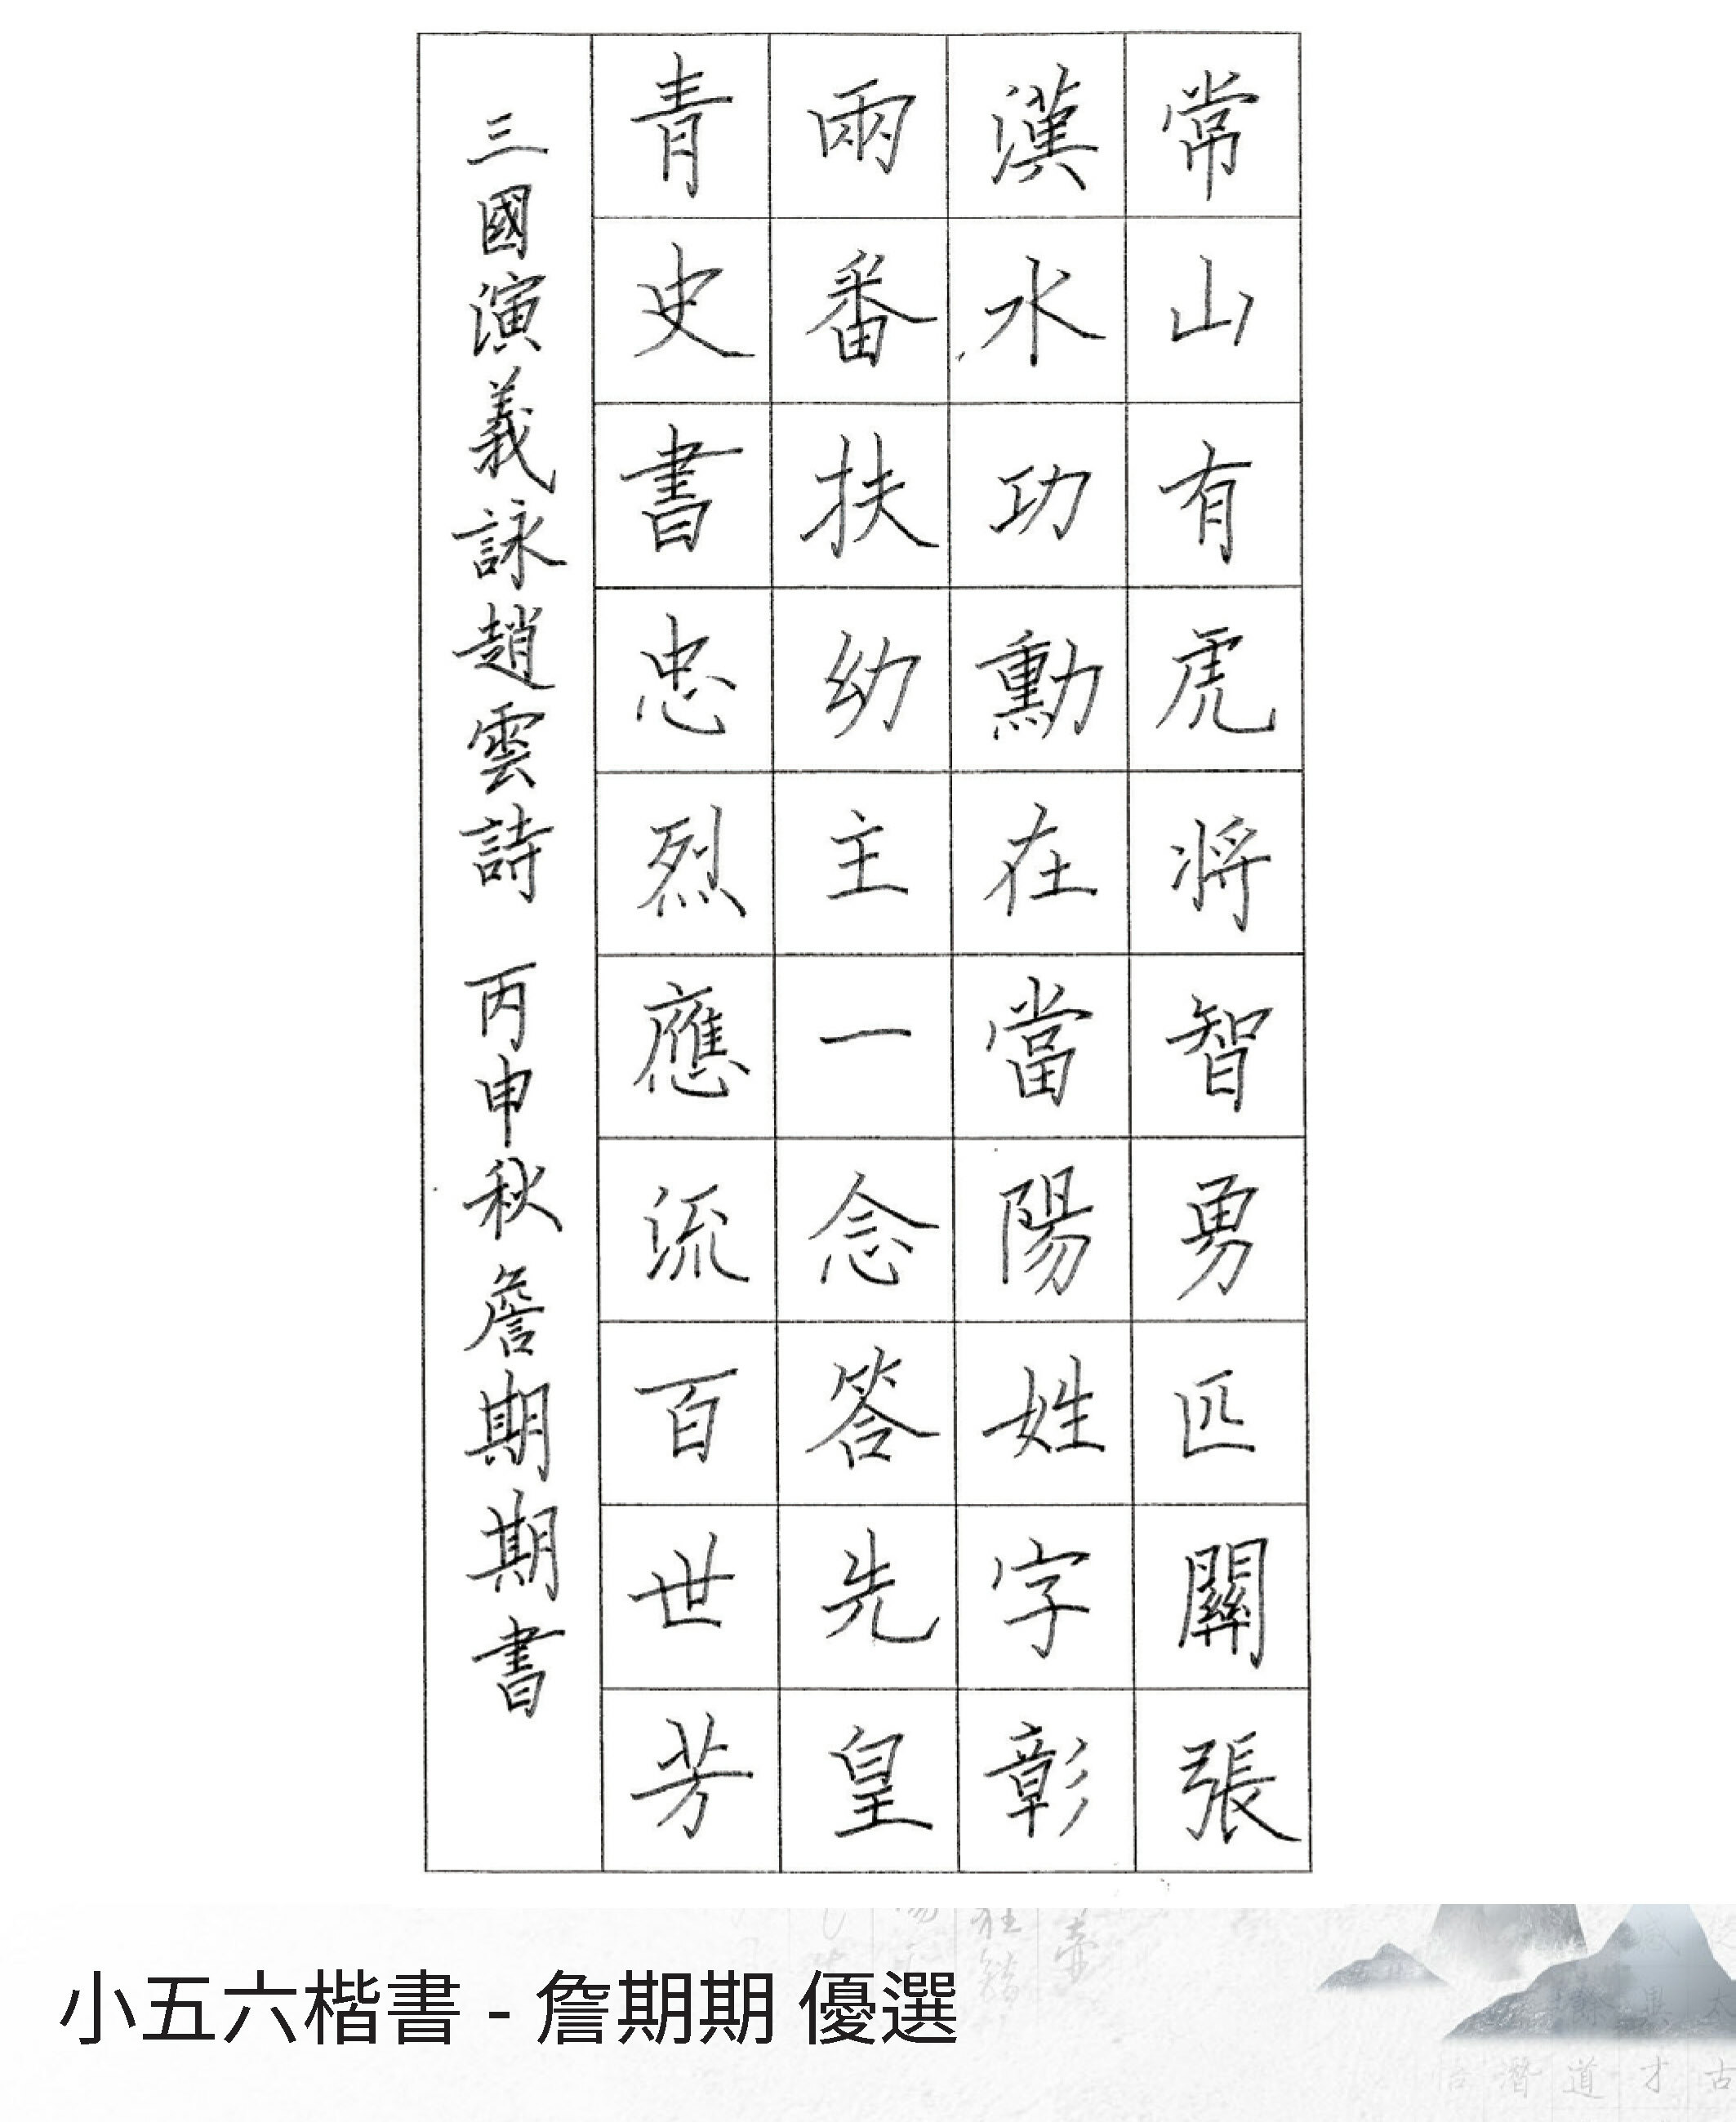 常山有虎將智勇匹關張
漢水功勳在當陽姓字彰
兩番扶幼主一念答先皇
青史書忠烈應流百世芳
三國演義詠趙雲詩 丙申秋 詹期期書
小五六楷書 - 詹期期 優選